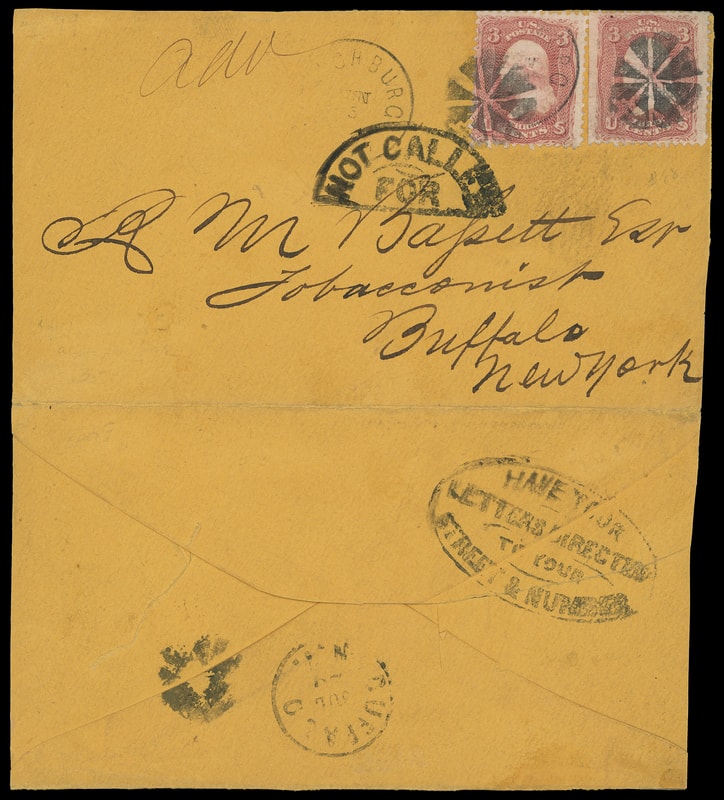 adv
3 U.S. POSTAGE 3
3 U.S. POSTAGE 3
U CENTS S
CENTS S
NOT CALLED
FOR
R M Bassett Esqr
Tobacconist
Buffalo
New York
HAVE YOUR
LETTERS DIRECTED
TO YOUR
STREET & NUMBER
BUFFALO
N.Y.